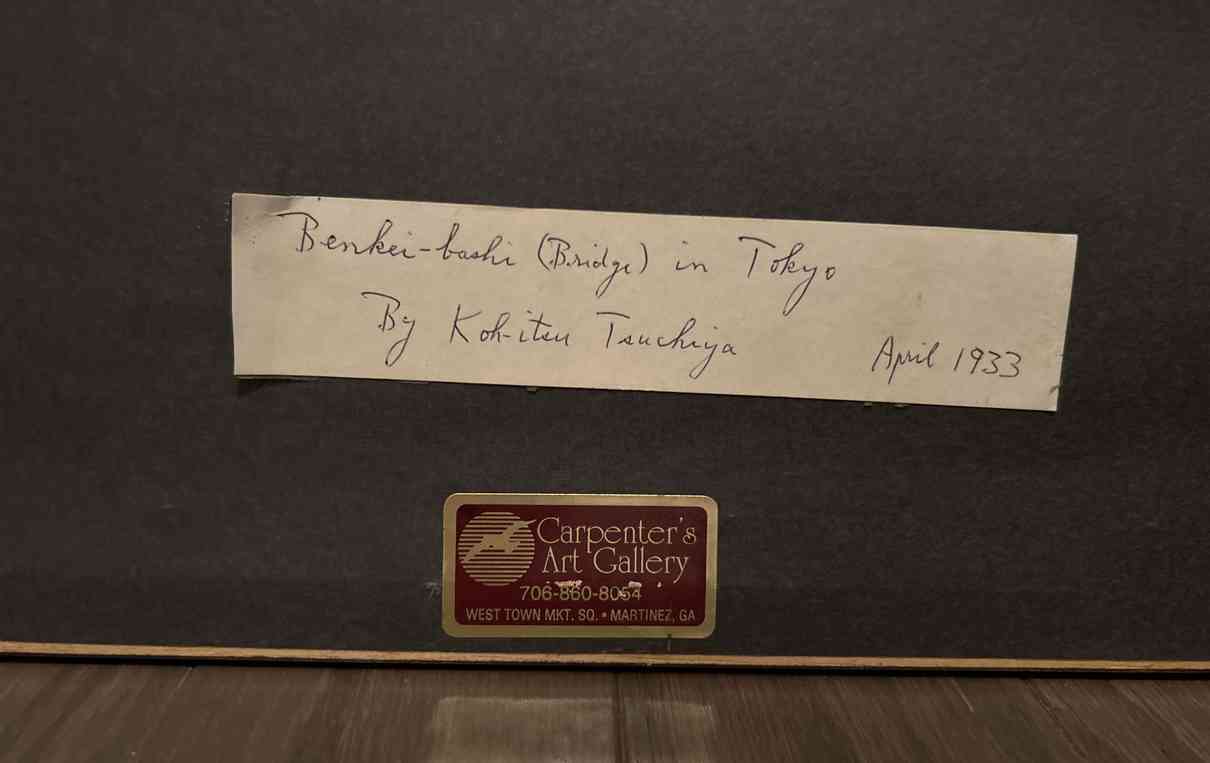 Benkei-bashi (Bridge) in Tokyo
By Koh-itsu Tsuchiya April 1933
Carpenter's
Art Gallery
706-860-8054
WEST TOWN MKT. SQ. • MARTINEZ, GA